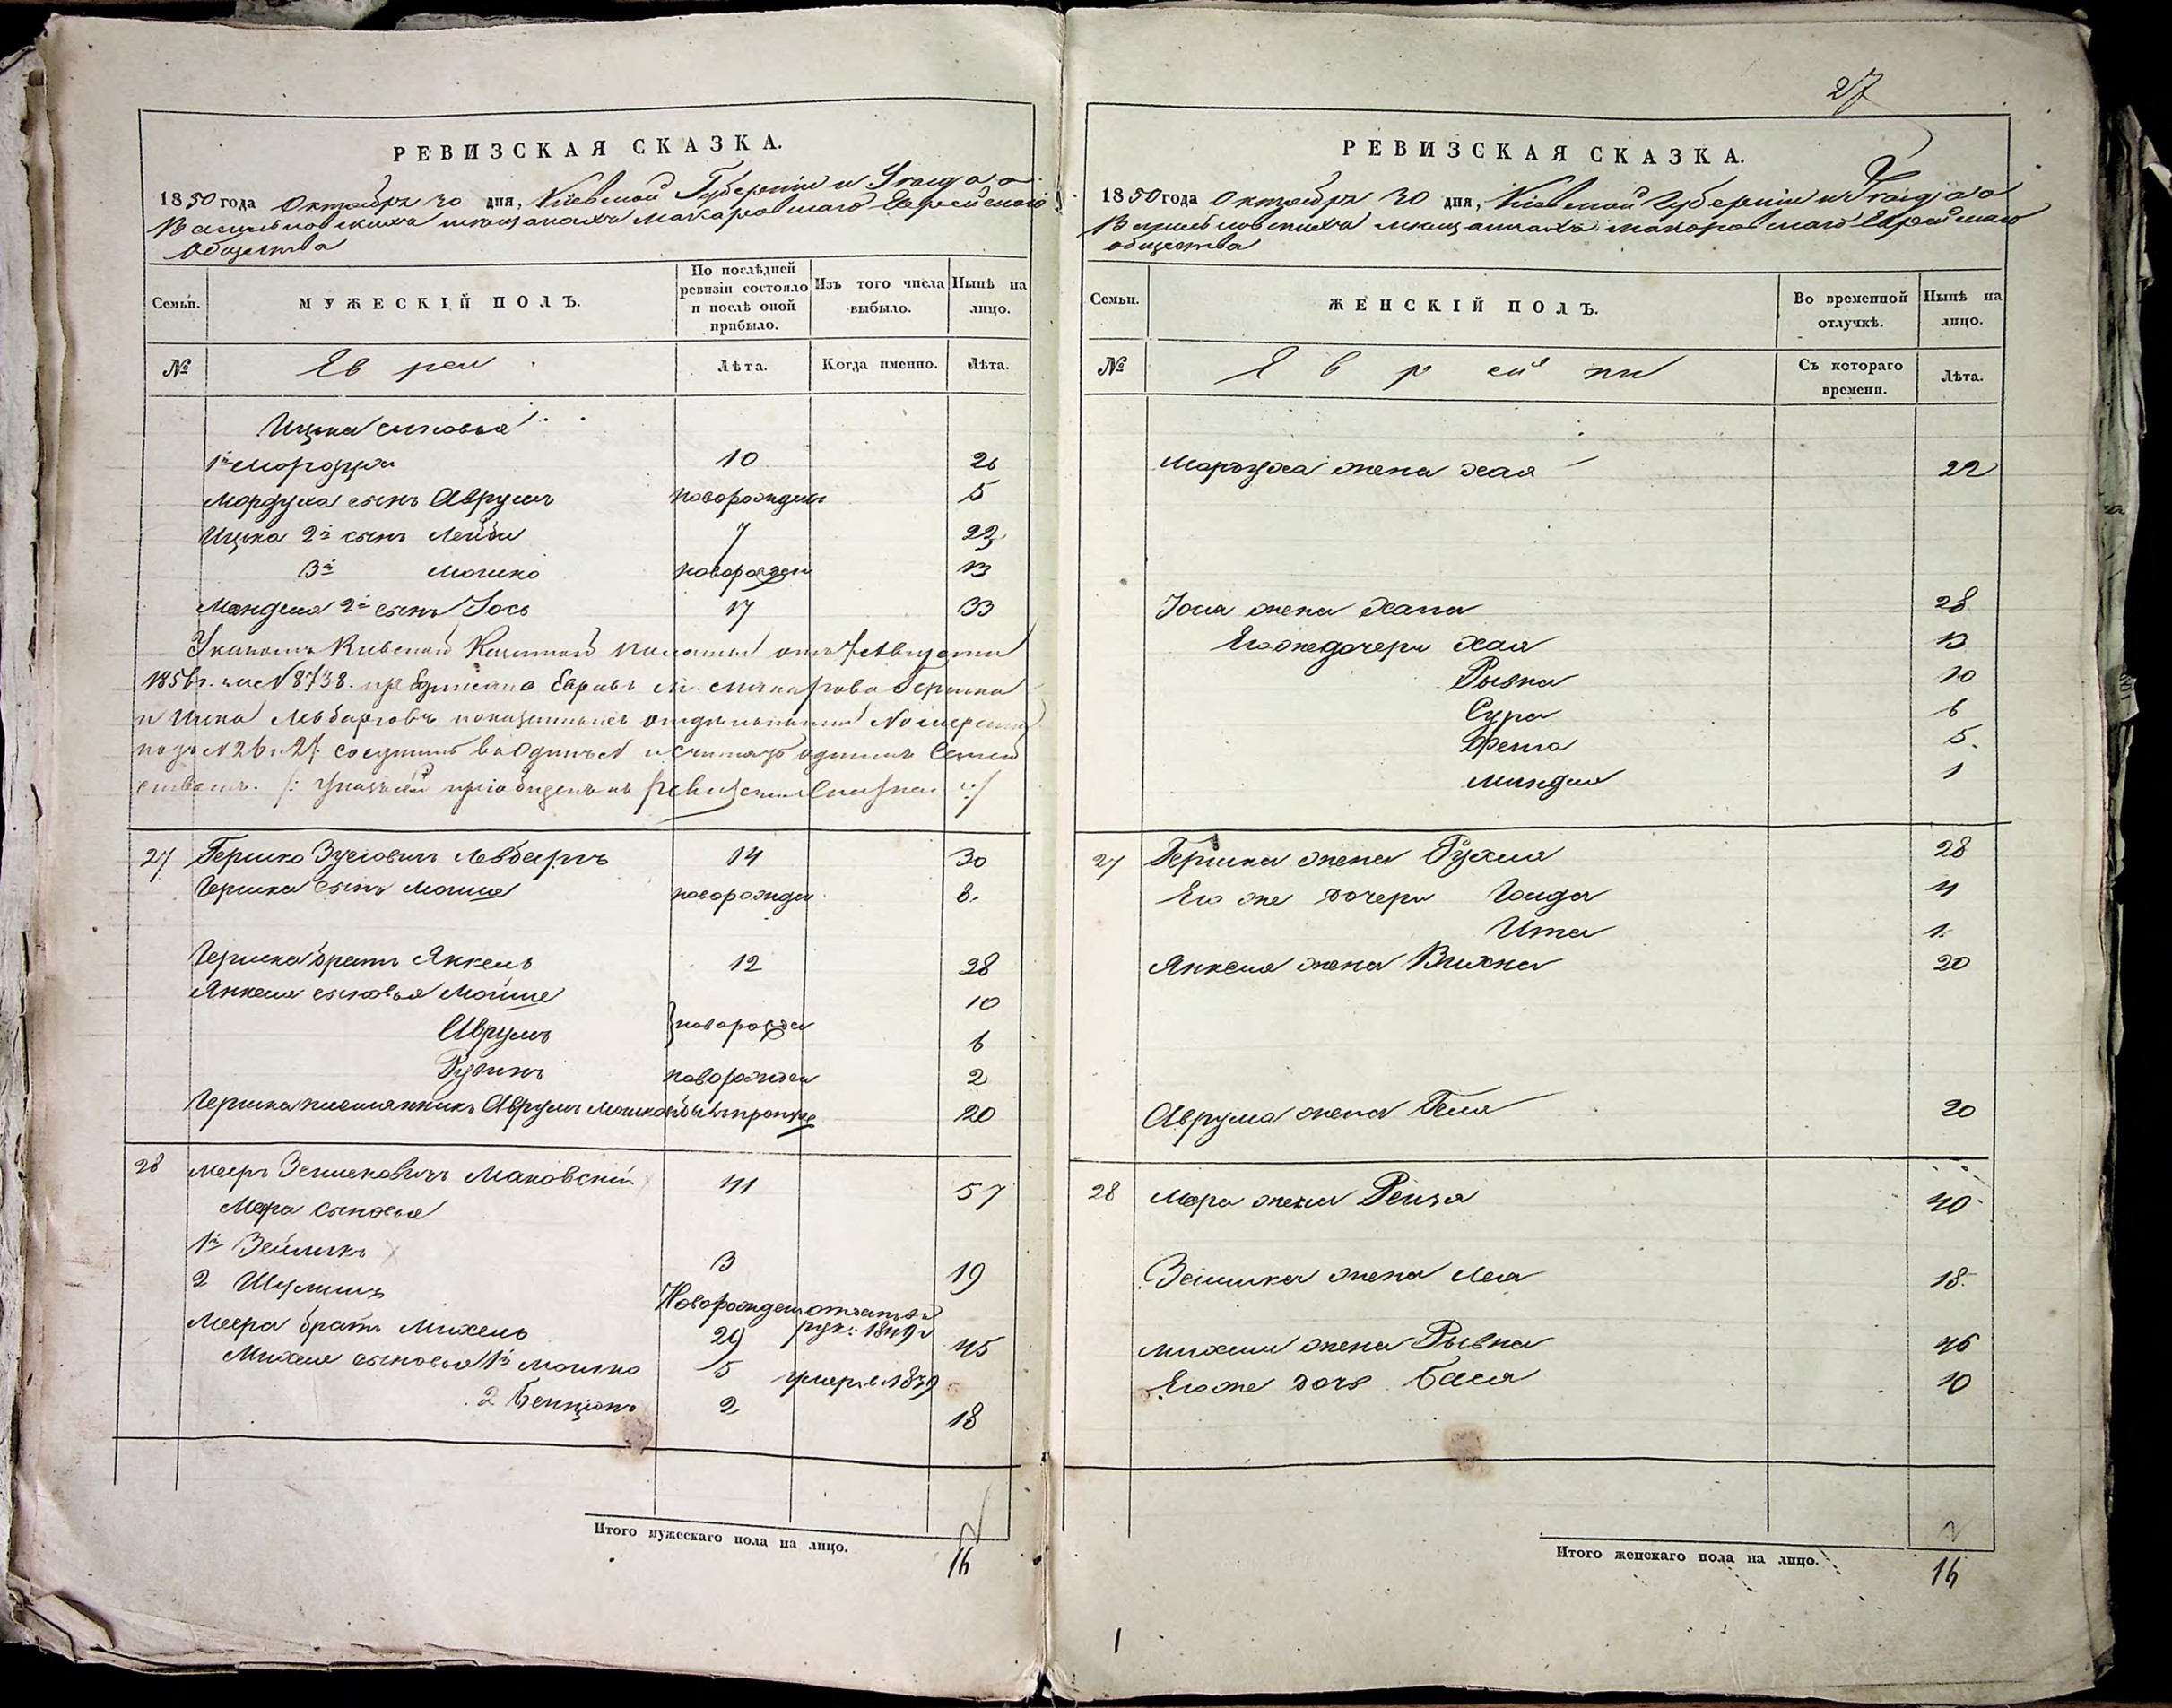 РЕВИЗСКАЯ СКАЗКА.
1850 года Октября 30 дня, Кіевской Губерніи и Уезда о
Васильковскихъ мещанахъ Макаровскаго Еврейскаго
Общества
Семьи.
МУЖЕСКІЙ ПОЛЪ.
По послѣдней ревизіи состояло и послѣ оной прибыло.
Изъ того числа выбыло.
Нынѣ на лицо.
№
Евреи
Лѣта.
Когда именно.
Лѣта.
Ицька сыновья
1й Мордухъ 10 26
Мордуха сынъ Аврумъ новорожден 5
Ицька 2й сынъ Лейба 7 23
3й Мошко новорожден 13
Менделя 2й сынъ Іось 17 33
Указомъ Кіевской Казенной Палаты отъ 7 Августа
185 г. за № 8738. предписано Евреевъ м. Макарова Гершка
и Ицка показанныхъ отдельными Номерами
подъ № 26 и 27 соединить въ одинъ № и считать однимъ Семей
ствомъ. /: Указъ сей пріобщенъ къ ревизской Сказке. :/
27 Гершко Зусовичъ 14 30
Гершка сынъ Мошше новорожден 8.
Гершка братъ Янкель 12 28
Янкеля сыновья Мойше 10
} новорожден
Аврумъ 6
Рувинъ новорожден 2
Гершка племянникъ Аврумъ Мошковъ 20
28 Мееръ Зейлековичъ Маковскій 41 57
Меера сыновья
1й Зейликъ 3 19
2 Шулимъ Новорожден отданъ въ
рек: 1849 г
Меера братъ Михель 29 45
Михеля сыновья 1й Мошко 5 умеръ в 1839
2 Бенционъ 2 18
Итого мужескаго пола на лицо. 16
27
РЕВИЗСКАЯ СКАЗКА.
1850 года Октября 30 дня, Кіевской Губерніи и Уезда о
Васильковскихъ мещанкахъ Макаровскаго Еврейскаго
общества
Семьи.
ЖЕНСКІЙ ПОЛЪ.
Во временной отлучкѣ.
Нынѣ на лицо.
№
Еврейки
Съ котораго времени.
Лѣта.
Мордуха жена Хая 22
Іося жена Хана 28
Его же дочери Хая 13
Рывка 10
Сура 6
Фейга 5.
Миндля 1
27 Гершка жена Рухля 28
Его же дочери Голда 4
Ита 1.
Янкеля жена 20
Аврума жена Геня 20
28 Меера жена Рейзя 40
Зейлика жена Лея 18.
Михеля жена Рывка 46
Его же дочь Бася 10
Итого женскаго пола на лицо. 16